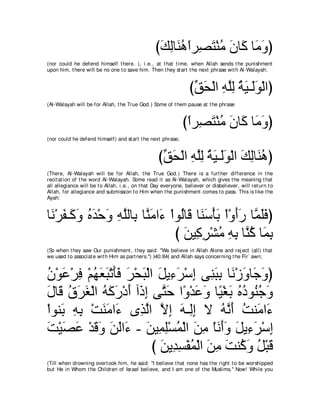 (وَمَا كَانَ مُنْتَصِراًهُنَالِكَ)
(nor could he defend himself there. ), i.e., at that time, when Allah sends the punishment upon him, there will be no one to save him. Then they start the next phrase with Al-Walayah;
(الْوَلَـيَةُ لِلَّهِ الْحَقِّ)
(Al-Walayah will be for Allah, the True God.) Some of them pause at the phrase
(وَمَا كَانَ مُنْتَصِراً)
(nor could he defend himself) and start the next phrase;
(هُنَالِكَ الْوَلَـيَةُ لِلَّهِ الْحَقِّ)
(There, Al-Walayah will be for Allah, the True God.) There is a further difference in the recitation of the word Al-Walayah. Some read it as Al-Walayah, which gives the meaning that all allegiance will be to Allah, i.e., on that Day everyone, believer or disbeliever, will return to Allah, for allegiance and submission to Him when the punishment comes to pass. This is like the Ayah:
(فَلَمَّا رَأَوْاْ بَأْسَنَا قَالُواْ ءَامَنَّا بِاللَّهِ وَحْدَهُ وَكَـفَرْنَا بِمَا كُنَّا بِهِ مُشْرِكِينَ )
(So when they saw Our punishment, they said: "We believe in Allah Alone and reject (all) that we used to associate with Him as partners.") (40:84) and Allah says concerning the Fir`awn;
(وَجَاوَزْنَا بِبَنِى إِسْرَءِيلَ الْبَحْرَ فَأَتْبَعَهُمْ فِرْعَوْنُ وَجُنُودُهُ بَغْيًا وَعَدْوًا حَتَّى إِذَآ أَدْرَكَهُ الْغَرَقُ قَالَ ءَامَنتُ أَنَّهُ لا إِلِـهَ إِلاَّ الَّذِى ءَامَنَتْ بِهِ بَنواْ إِسْرَءِيلَ وَأَنَاْ مِنَ الْمُسْلِمِينَ - ءَالْنَ وَقَدْ عَصَيْتَ قَبْلُ وَكُنتَ مِنَ الْمُفْسِدِينَ )
(Till when drowning overtook him, he said: "I believe that none has the right to be worshipped but He in Whom the Children of Israel believe, and I am one of the Muslims." Now! While you